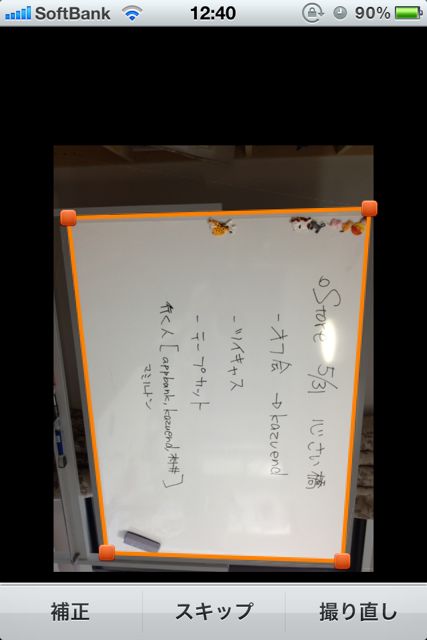 SoftBank 12:40 90%
○Store 5/31 心さい橋
-オフ会 → kazuend
-ツイキャス
-テープカット
行く人 [appbank, kazuend, 村井]
マミルトン
補正 スキップ 撮り直し